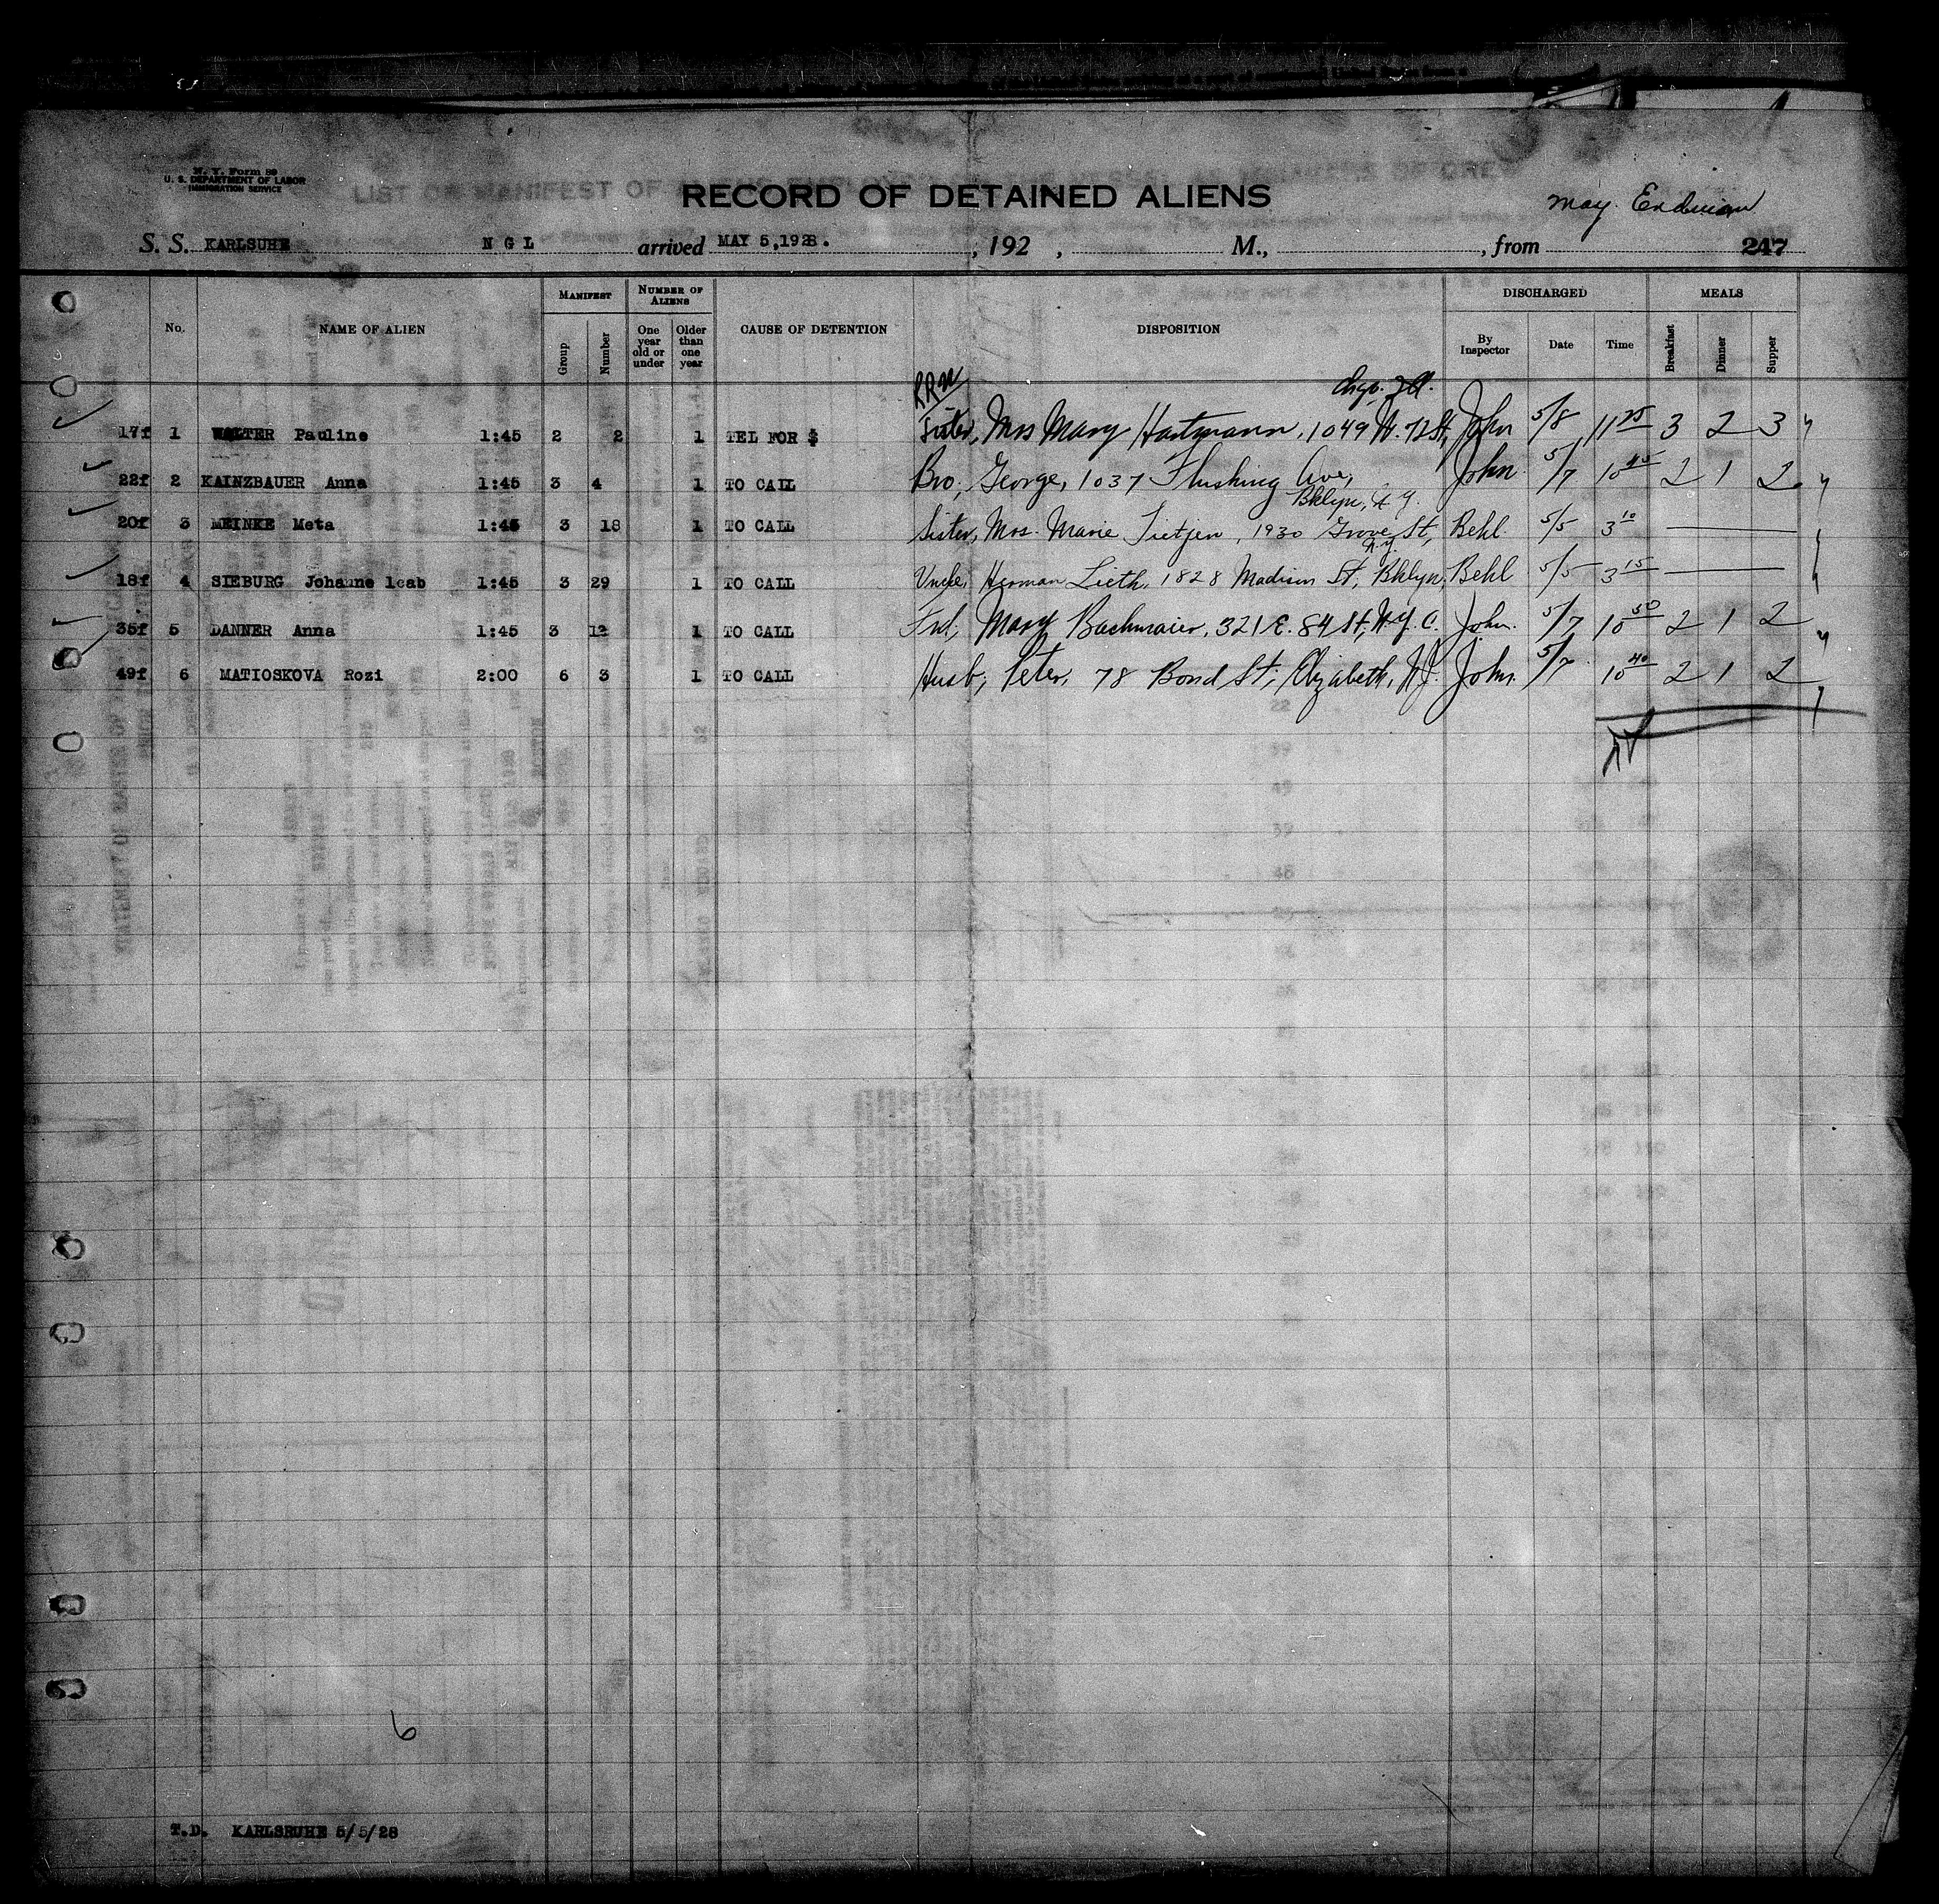 N. Y. Form 89
U. S. DEPARTMENT OF LABOR
IMMIGRATION SERVICE
RECORD OF DETAINED ALIENS
May
S. S. KARLSUHE N G L arrived MAY 5, 1928. , 192 , M., , from 247
No. NAME OF ALIEN MANIFEST Group Number NUMBER OF ALIENS One year old or under Older than one year CAUSE OF DETENTION DISPOSITION DISCHARGED By Inspector Date Time MEALS Breakfast Dinner Supper
17f 1 WALTER Pauline 1:45 2 2 1 TEL FOR $ Sister, Mrs Mary Hartmann, 1049 N. 72 St, John 5/8 11 25 3 2 3
22f 2 KAINZBAUER Anna 1:45 3 4 1 TO CALL Bro; George, 1037 Flushing Ave, Bklyn, N.Y. John 5/7 10 45 2 1 2
20f 3 MEINKE Meta 1:45 3 18 1 TO CALL Sister, Mrs. Marie Tietjen, 1930 Grove St, N.Y. Behl 5/5 3 10
18f 4 SIEBURG Johanne leab 1:45 3 29 1 TO CALL Uncle, Herman Lieth, 1828 Madison St, Bklyn, Behl 5/5 3 15
35f 5 DANNER Anna 1:45 3 12 1 TO CALL Frd; Mary Bachmaier, 321 E. 84 St, N.Y.C. John 5/7 10 50 2 1 2
49f 6 MATIOSKOVA Rozi 2:00 6 3 1 TO CALL Husb; Peter, 78 Bond St; Elizabeth, N.J. John 5/7 10 40 2 1 2
6
T.D. KARLSRUHE 5/5/28